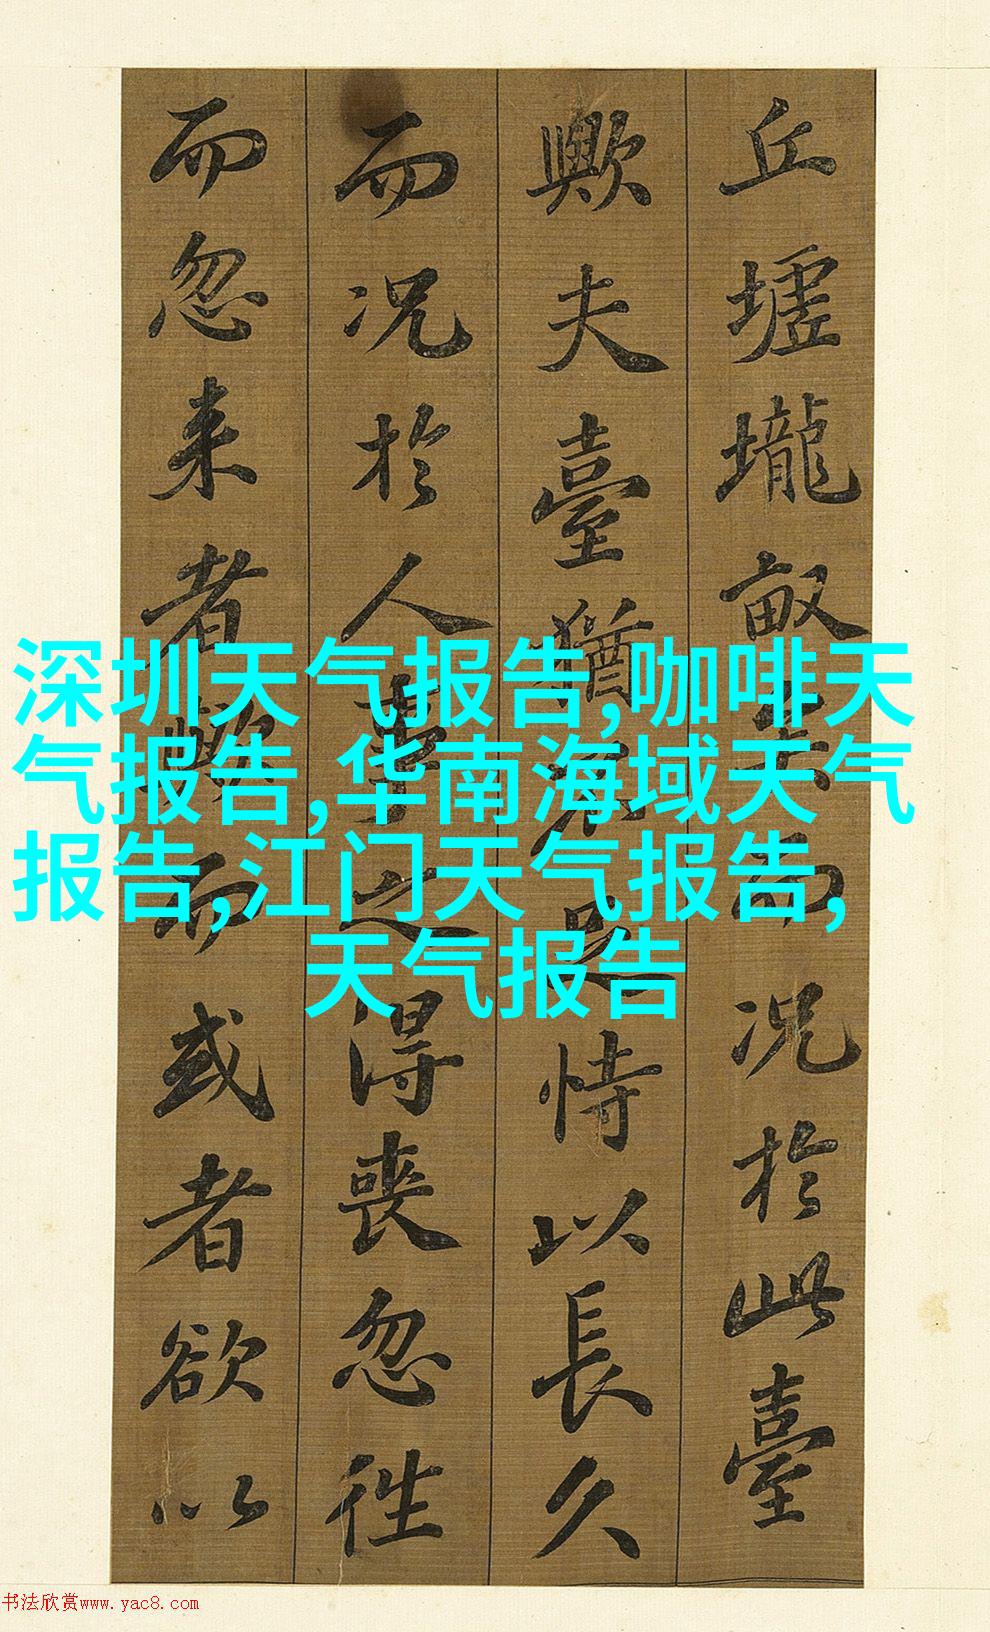 丘墟壠畝矣而况於此臺
歟夫臺猶不足恃以長久
而况於人事之得喪忽往
而忽来者歟而或者欲以
深圳天气报告,咖啡天
气报告,华南海域天气
报告,江门天气报告,
天气报告
书法欣赏www.yac8.com